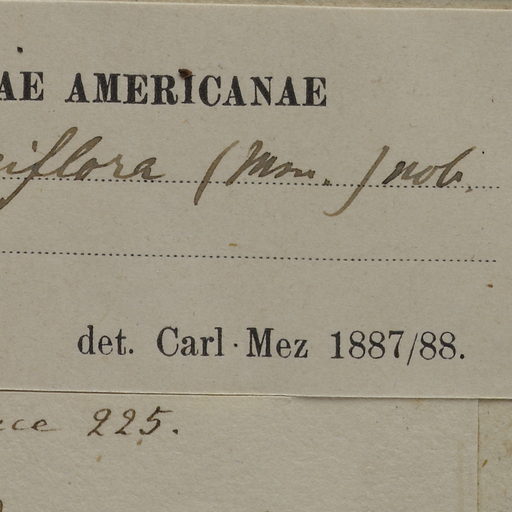 AE AMERICANAE
iflora (Msn.) nob.
det. Carl Mez 1887/88.
225.